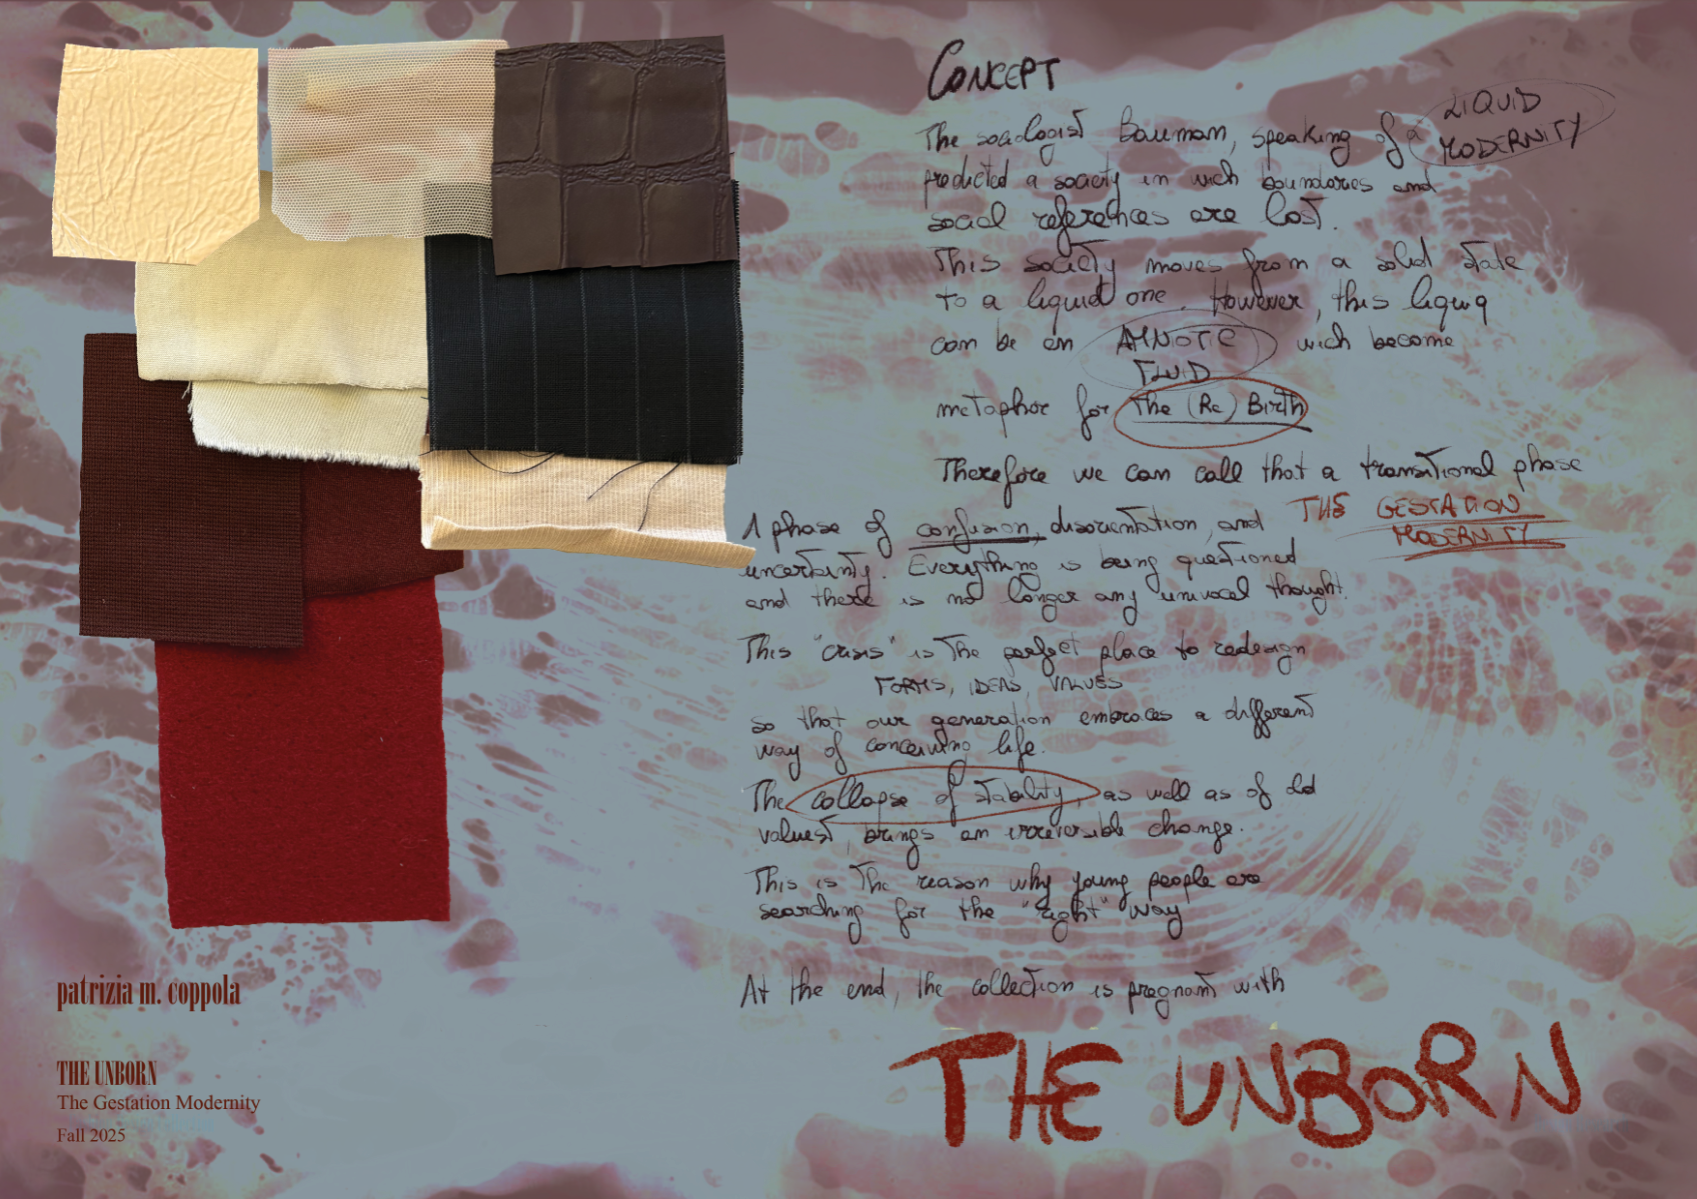 CONCEPT
The sociologist Bauman, speaking of a LIQUID
MODERNITY
predicted a society in wich boundaries and
social references are lost.
This society moves from a solid state
to a liquid one. However, this liquig
can be an AMNIOTIC wich become
FLUID
metaphor for the (Re) Birth
Therefore we can call that a transitional phase
THE GESTATION
MODERNITY
A phase of confusion, disorientation, and
uncertainty. Everything is being questioned
and there is no longer any univocal thought.
This "crisis" is the perfect place to redesign
FORMS, IDEAS, VALUES
so that our generation embraces a different
way of conceiving life.
The collapse of stability, as well as of old
values, brings an irreversible change.
This is the reason why young people are
searching for the "right" way
At the end, the collection is pregnant with
THE UNBORN
patrizia m. coppola
THE UNBORN
The Gestation Modernity
Fall 2025